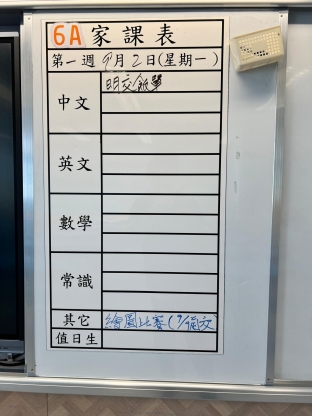 6A 家課表
第一週 9月2日(星期一)
中文 明交飯單
英文
數學
常識
其它 繪圖比賽(9/
值日生